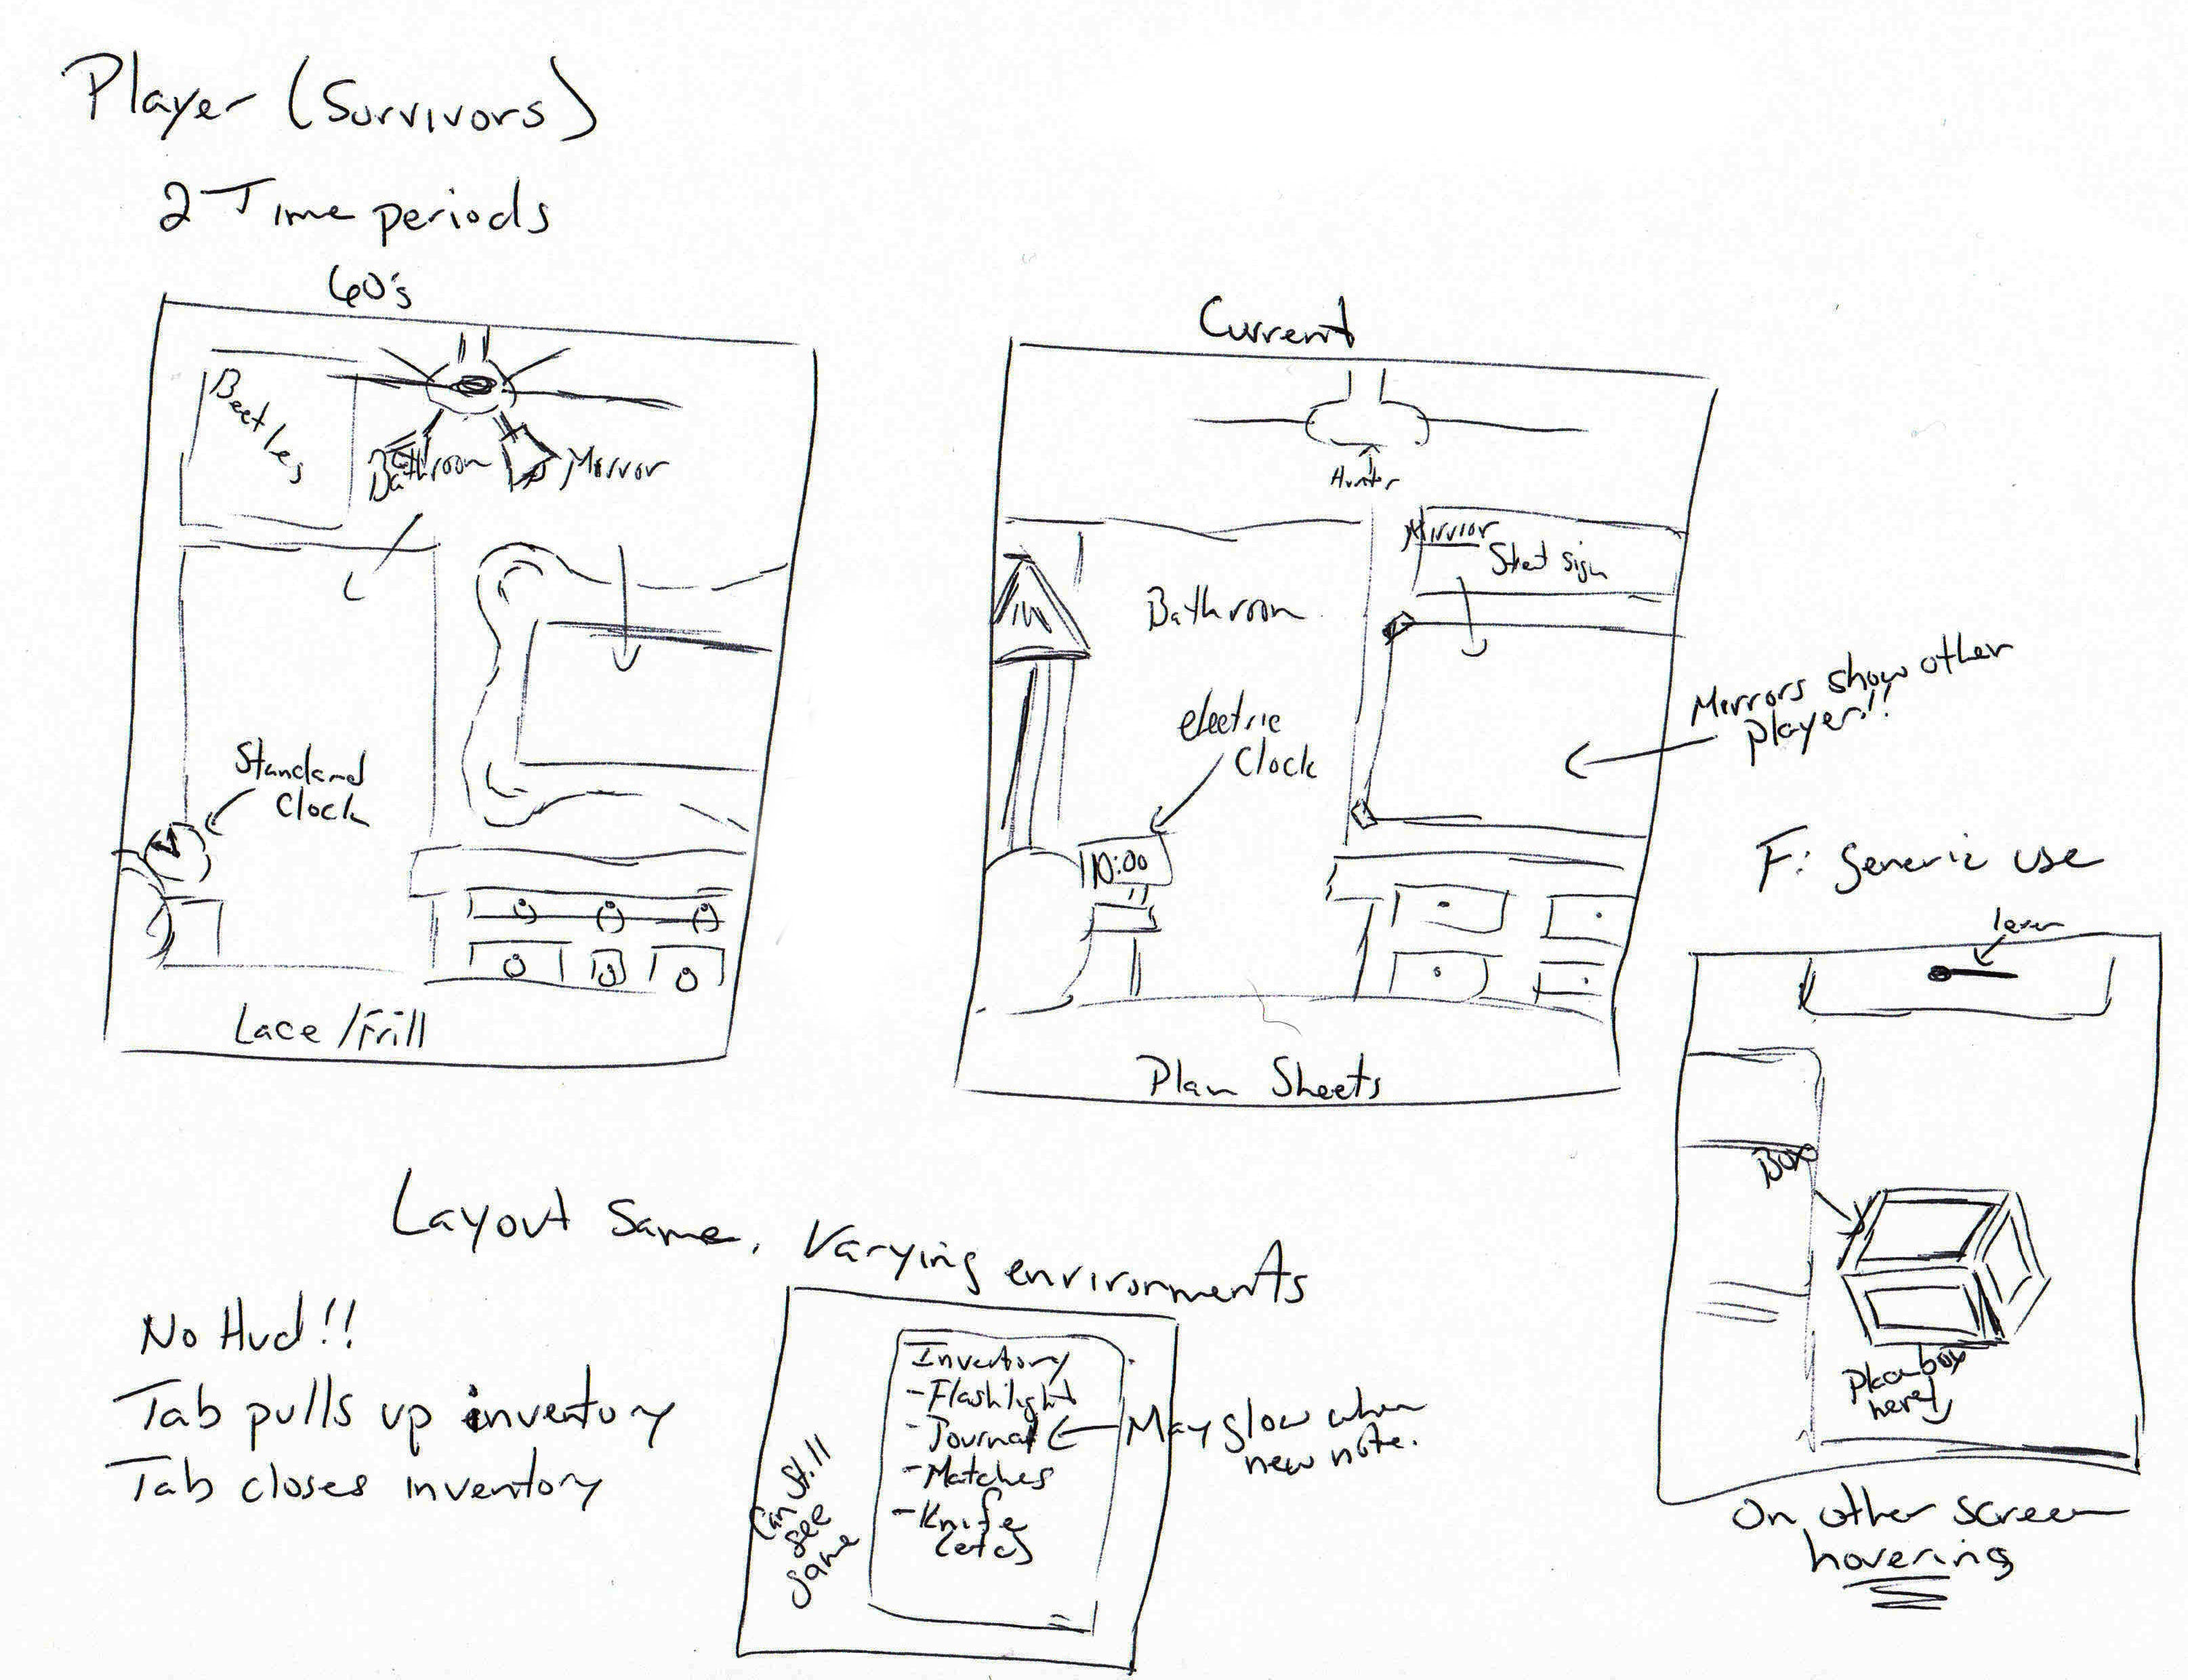 Player (Survivors)
2 Time periods
60's
Beetles
Bathroom
Mirror
Standard
Clock
Lace/Frill
Current
Hunter
Mirrior
Street sign
Bathroom
electric
Clock
10:00
Mirrors show other
player!!
Plain Sheets
F: generic use
lever
Box
Place box
here
On other screen
hovering
Layout Same, Varying environments
No Hud!!
Tab pulls up inventory
Tab closes inventory
Can still
see
game
Inventory
-Flashlight
-Journal
-Matches
-Knife
(etc)
May glow when
new note.